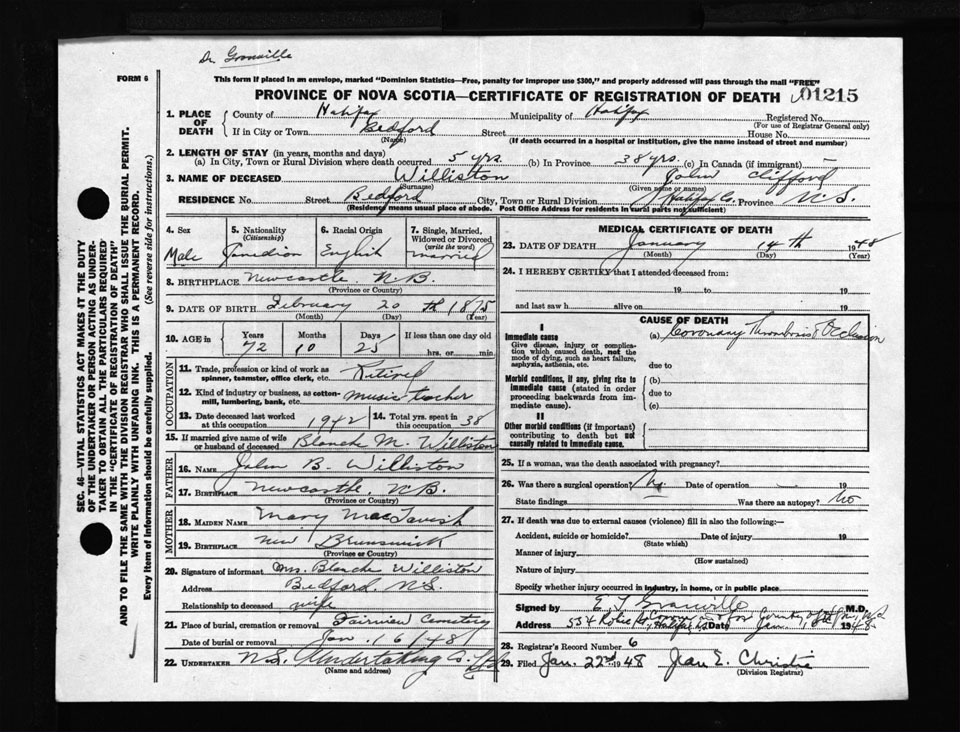 Dr Granville
FORM 6
This form if placed in an envelope, marked "Dominion Statistics—Free, penalty for improper use $300," and properly addressed will pass through the mail "FREE"
PROVINCE OF NOVA SCOTIA—CERTIFICATE OF REGISTRATION OF DEATH 01215
1. PLACE OF DEATH County of Halifax Municipality of Halifax Registered No.
(For use of Registrar General only)
If in City or Town Bedford Street House No.
(Name) (If death occurred in a hospital or institution, give the name instead of street and number)
2. LENGTH OF STAY (in years, months and days)
(a) In City, Town or Rural Division where death occurred 5 yrs. (b) In Province 38 yrs. (c) In Canada (if immigrant) –
3. NAME OF DECEASED Williston John Clifford
(Surname) (Given name or names)
RESIDENCE No. Street Bedford City, Town or Rural Division Halifax Co. Province N.S.
(Residence means usual place of abode. Post Office Address for residents in rural parts not sufficient)
4. Sex 5. Nationality (Citizenship) 6. Racial Origin 7. Single, Married, Widowed or Divorced (write the word)
Male Canadian English married
8. BIRTHPLACE Newcastle N.B.
(Province or Country)
9. DATE OF BIRTH February 20 th 1875
(Month) (Day) (Year)
10. AGE in Years Months Days If less than one day old
72 10 25 hrs. or min.
OCCUPATION
11. Trade, profession or kind of work as spinner, teamster, office clerk, etc. Retired
12. Kind of industry or business, as cotton-mill, lumbering, bank, etc. music teacher
13. Date deceased last worked at this occupation 1942 14. Total yrs. spent in this occupation 38
15. If married give name of wife or husband of deceased Blanche M. Williston
FATHER
16. NAME John B. Williston
17. BIRTHPLACE Newcastle, N.B.
(Province or Country)
MOTHER
18. MAIDEN NAME Mary MacTavish
19. BIRTHPLACE New Brunswick
(Province or Country)
20. Signature of informant Mrs. Blanche Williston
Address Bedford, N.S.
Relationship to deceased wife
21. Place of burial, cremation or removal Fairview Cemetery
Date of burial or removal Jan. 16/48
22. UNDERTAKER N.S. Undertaking Co. Ltd
(Name and address)
MEDICAL CERTIFICATE OF DEATH
23. DATE OF DEATH January 14th 1948
(Month) (Day) (Year)
24. I HEREBY CERTIFY that I attended deceased from:
19 to 19
and last saw h alive on 19
CAUSE OF DEATH
I
Immediate cause (a) Coronary Thrombosis & Occlusion
Give disease, injury or complication which caused death, not the mode of dying, such as heart failure, asphyxia, asthenia, etc.
due to
Morbid conditions, if any, giving rise to immediate cause (stated in order proceeding backwards from immediate cause).
(b)
due to
(c)
II
Other morbid conditions (if important) contributing to death but not causally related to immediate cause.
25. If a woman, was the death associated with pregnancy?
26. Was there a surgical operation? No Date of operation – 19
State findings Was there an autopsy? No
27. If death was due to external causes (violence) fill in also the following:—
Accident, suicide or homicide? Date of injury 19
(State which)
Manner of injury
(How sustained)
Nature of injury
Specify whether injury occurred in industry, in home, or in public place
Signed by E. Granville M.D.
Address 554 Robie Halifax Date Jan. 1948
28. Registrar's Record Number 6
29. Filed Jan. 22nd 1948 Jean E. Christie
(Division Registrar)
SEC. 46—VITAL STATISTICS ACT MAKES IT THE DUTY OF THE UNDERTAKER OR PERSON ACTING AS UNDERTAKER TO OBTAIN ALL THE PARTICULARS REQUIRED IN THE "CERTIFICATE OF REGISTRATION OF DEATH" AND TO FILE THE SAME WITH THE DIVISION REGISTRAR WHO SHALL ISSUE THE BURIAL PERMIT.
WRITE PLAINLY WITH UNFADING INK. THIS IS A PERMANENT RECORD.
Every item of information should be carefully supplied. (See reverse side for instructions.)